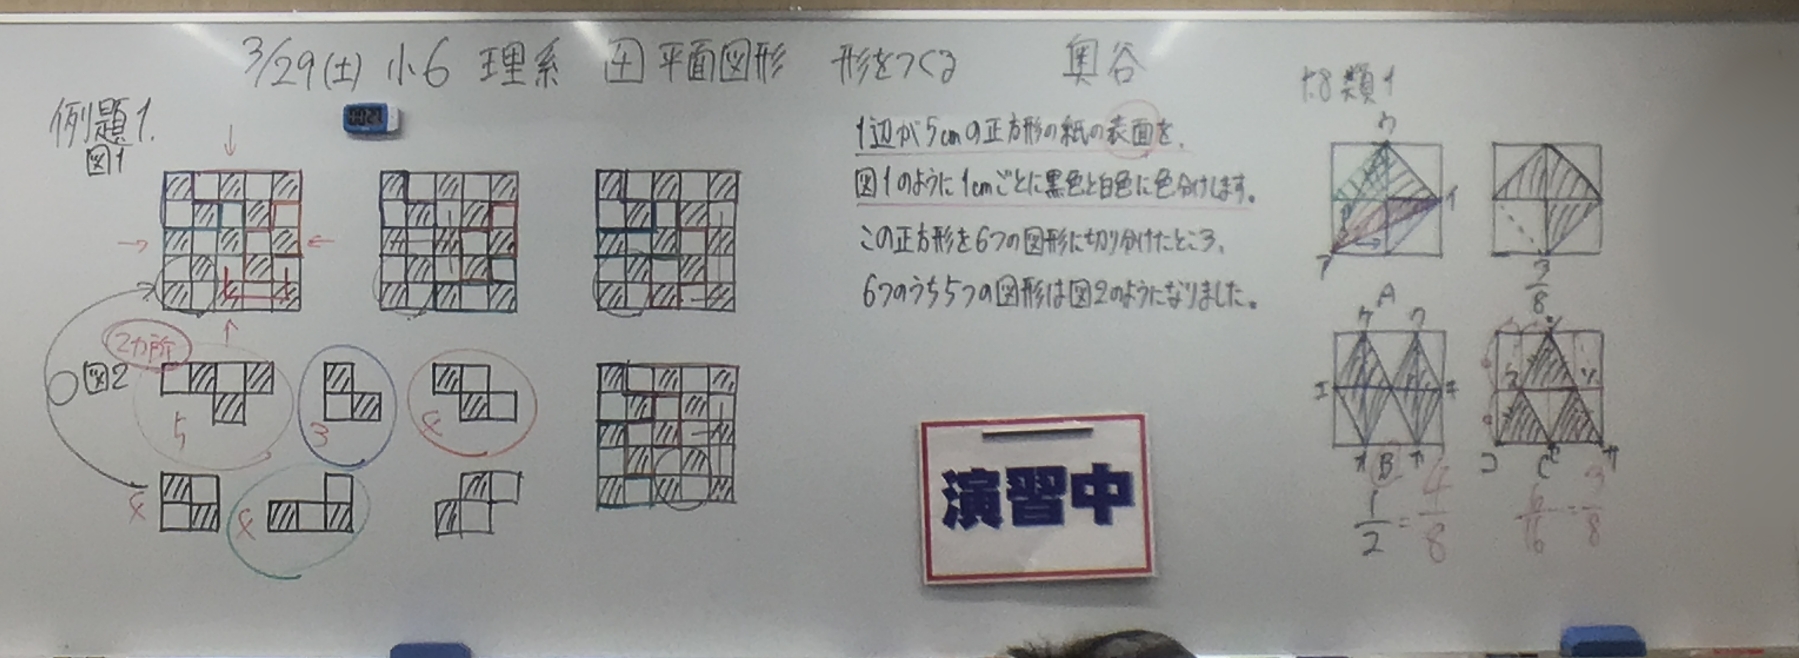 3/29(土) 小6 理系 4 平面図形 形をつくる 奥谷
例題1.
図1
1辺が5cmの正方形の紙の表面を、
図1のように1cmごとに黒色と白色に色分けします。
この正方形を6つの図形に切り分けたところ、
6つのうち5つの図形は図2のようになりました。
2カ所
図2
5
3
4
4
4
演習中
類1
ウ
イ
ア
A
3/8
エ
B
C
1/2=4/8
6/16=3/8